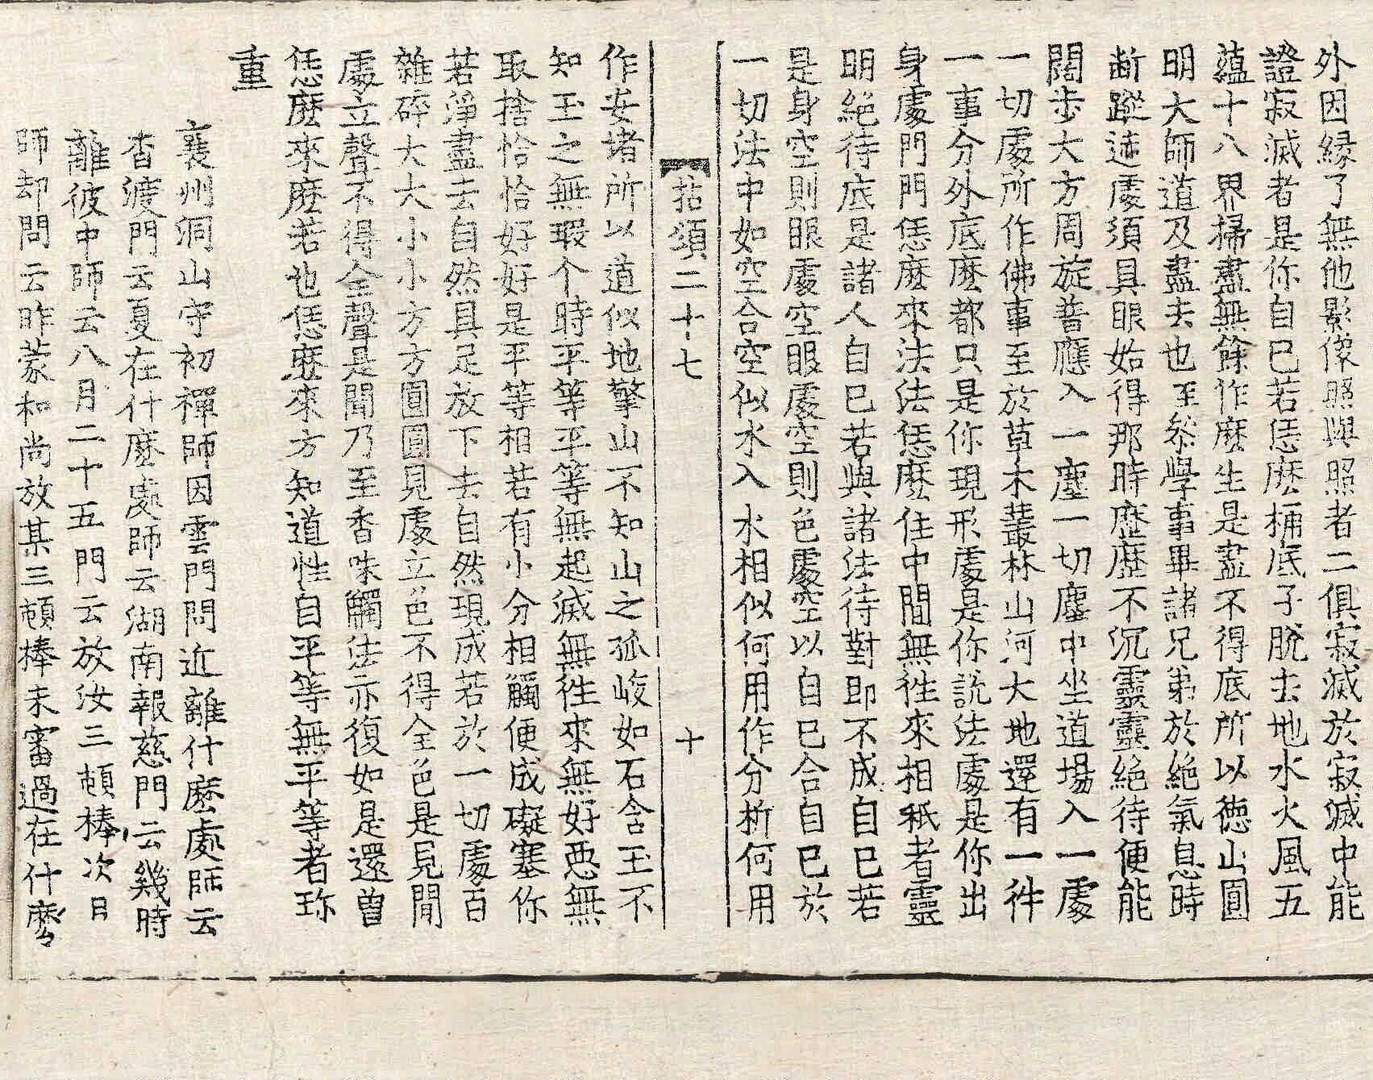 外因緣了無他影像照與照者二俱寂滅於寂滅中能
證寂滅者是你自已若恁麽桶底子脫去地水火風五
蘊十八界掃盡無餘作麽生是盡不得底所以德山圓
明大師道及盡去也至叅學事畢諸兄弟於絶氣息時
斷蹤迹處須具眼始得那時歷歷不沉靈靈絶待便能
闊步大方周旋普應入一塵一切塵中坐道場入一處
一切處所作佛事至於草木叢林山河大地還有一件
一事分外底麽都只是你現形處是你說法處是你出
身處門門恁麽來法法恁麽住中間無徃來相秪者靈
明絶待底是諸人自已若與諸法待對即不成自已若
是身空則眼處空眼處空則色處空以自已合自已於
一切法中如空合空似水入水相似何用作分析何用
拈頌二十七 十
作安堵所以道似地擎山不知山之孤峻如石含玉不
知玉之無瑕个時平等平等無起滅無徃來無好惡無
取捨恰恰好好是平等相若有小分相觸便成礙塞你
若淨盡去自然具足放下去自然現成若於一切處百
雜碎大大小小方方圓圓見處立色不得全色是見聞
處立聲不得全聲是聞乃至香味觸法亦復如是還曽
恁麽來麽若也恁麽來方知道性自平等無平等者珎
重
襄州洞山守初禪師因雲門問近離什麽處師云
査渡門云夏在什麽處師云湖南報慈門云幾時
離彼中師云八月二十五門云放汝三頓棒次日
師却問云昨蒙和尚放某三頓棒未審過在什麽